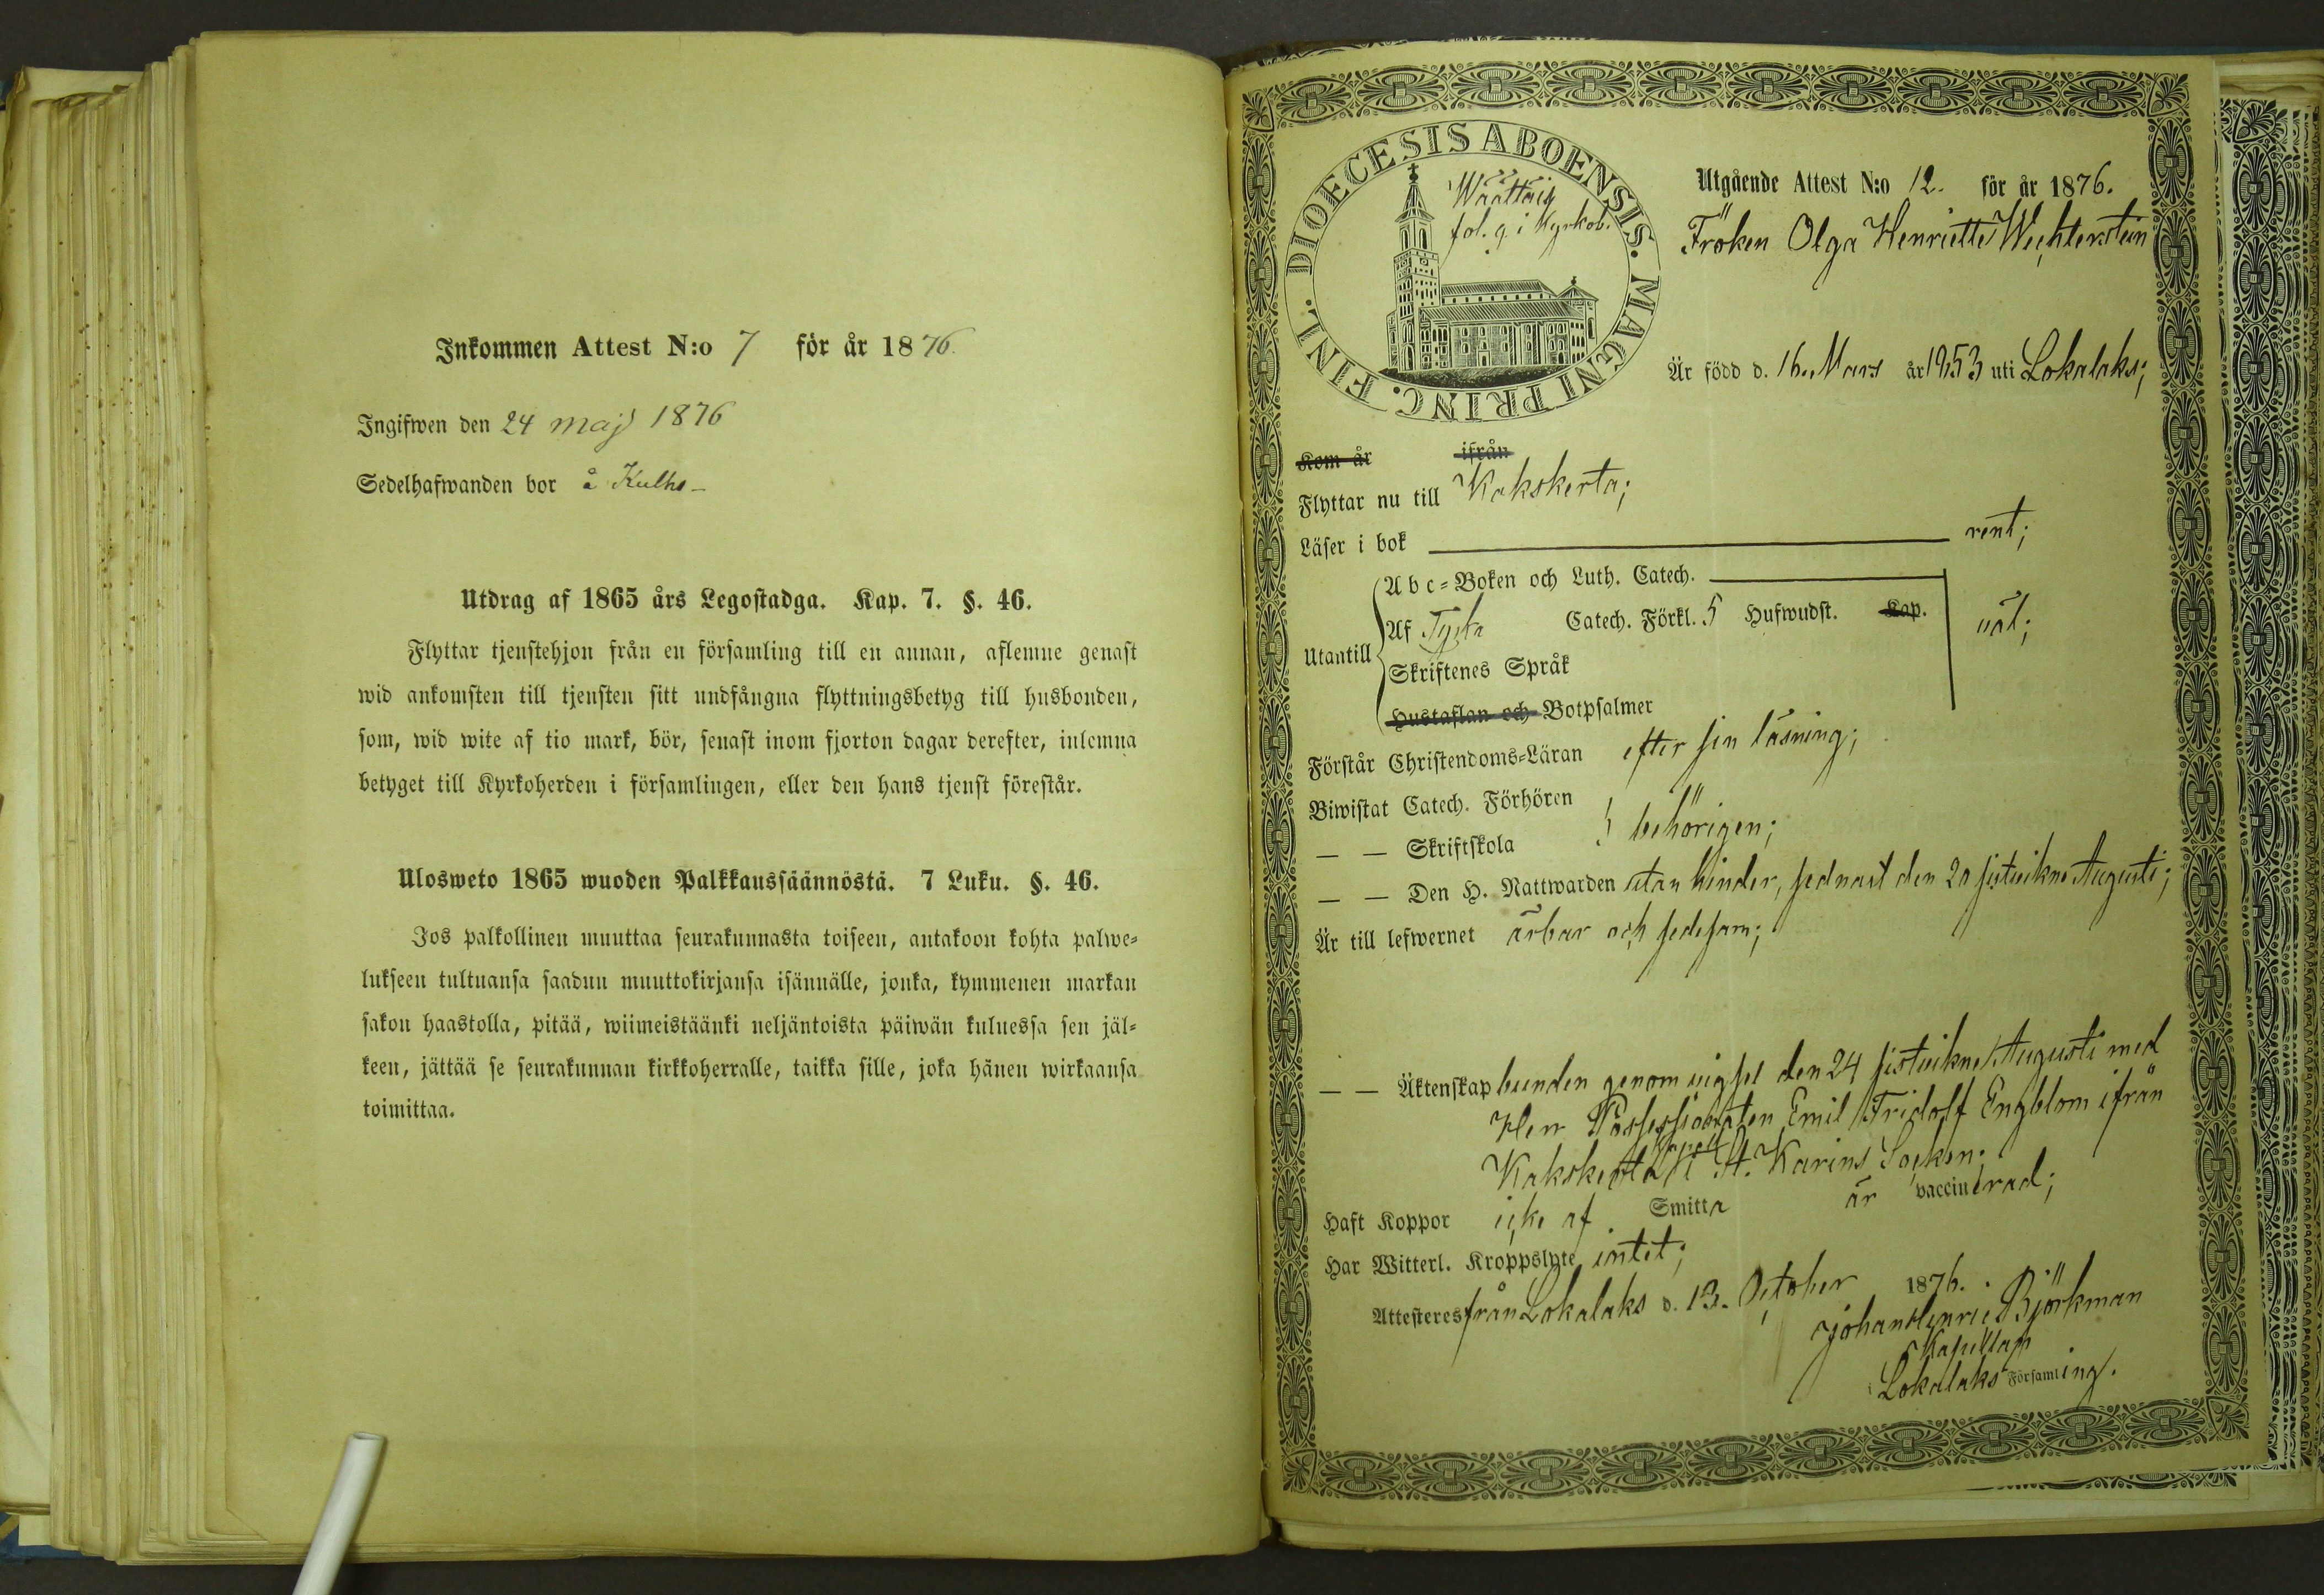 Inkommen Attest N:o 7 för år 1876.
Ingifwen den 24 maj 1876
Sedelhafwanden bor å Kulho
Utdrag af 1865 års Legostadga. Kap. 7. §. 46.
Flyttar tjenstehjon från en församling till en annan, aflemne genast
wid ankomsten till tjensten sitt undfångna flyttningsbetyg till husbonden,
som, wid wite af tio mark, bör, senast inom fjorton dagar derefter, inlemna
betyget till Kyrkoherden i församlingen, eller den hans tjenst förestår.
Ulosweto 1865 wuoden Palkkaussäännöstä. 7 Luku. §. 46.
Jos palkollinen muuttaa seurakunnasta toiseen, antakoon kohta palwe-
lukseen tultuansa saadun muuttokirjansa isännälle, jonka, kymmenen markan
sakon haastolla, pitää, wiimeistäänki neljäntoista päiwän kuluessa sen jäl-
keen, jättää se seurakunnan kirkkoherralle, taikka sille, joka hänen wirkaansa
toimittaa.
DIOECESIS ABOENSIS. MAGNI PRINC. FINL.
fol. 9 i Kyrkob.
Utgående Attest N:o 12. för år 1876.
Fröken Olga Henriette Wechterstein
Är född d. 16. Mars år 1853 uti Lokalaks;
Kom år ifrån
Flyttar nu till Kakskerta;
Läser i bok rent;
Utantill
Abc-Boken och Luth. Catech.
Af Tysta Catech. Förkl. 5 Hufwudst. Kap. väl;
Skriftenes Språk
Hustaflan och Botpsalmer
Förstår Christendoms-Läran efter sin läsning;
Biwistat Catech. Förhören
— — Skriftskola behörigen;
— — Den H. Nattwarden utan hinder, sednast den 20 sistvikne Augusti;
Är till lefwernet ärbar och sedesam;
— — Äktenskap bunden genom vigsel den 24 sistvikne Augusti med
Herr Possessionaten Emil Fridolf Engblom ifrån
Kakskerta Kapell i St. Karins Socken;
Haft Koppor icke af Smitta är vaccinerad;
Har Witterl. Kroppslyte intet;
Attesteres från Lokalaks d. 13. October 1876.
Johan Henric Björkman
Kapellan
i Lokalaks Församling.